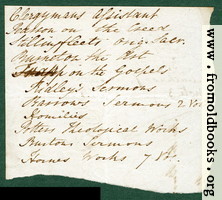 Clergymans Assistant
Pearson on the Creed
Stillingfleets Orig. Sacr.
Burnet on the Art
on the Gospels
Ridley's Sermons
Barrow's Sermons 2 Vol
Homilies
Potters Theological Works
Sermons
Hornes Works 7 Vols.
www.fromoldbooks.org